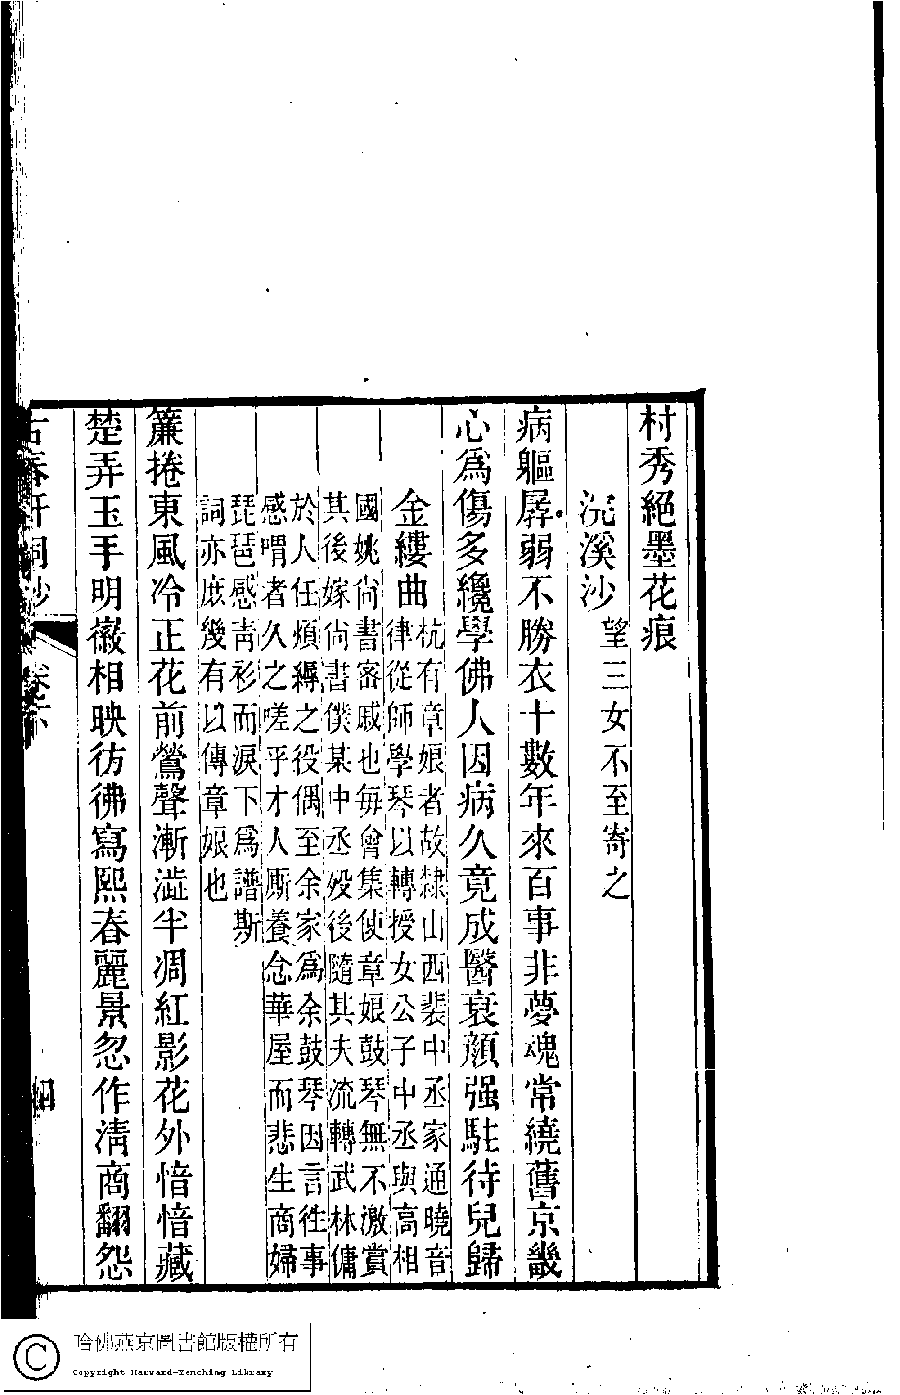 村秀絕墨花痕
浣溪沙 望三女不至寄之
病軀孱弱不勝衣十數年來百事非夢魂常繞舊京畿
心爲傷多纔學佛人因病久竟成醫衰顏强駐待兒歸
金縷曲 杭有章娘者故隸山西裴中丞家通曉音
律從師學琴以轉授女公子中丞與高相
國姚尚書密戚也每會集使章娘鼓琴無不激賞
其後嫁尚書僕某中丞歿後隨其夫流轉武林傭
於人任煩縟之役偶至余家爲余鼓琴因言往事
感喟者久之嗟乎才人厮養念華屋而悲生商婦
琵琶感靑衫而淚下爲譜斯
詞亦庶幾有以傳章娘也
簾捲東風冷正花前鶯聲漸澁半凋紅影花外愔愔藏
楚弄玉手明徽相映彷彿寫熙春麗景忽作淸商翻怨
古春軒詞鈔 卷下 四
哈佛燕京圖書館版權所有
Copyright Harvard-Yenching Library